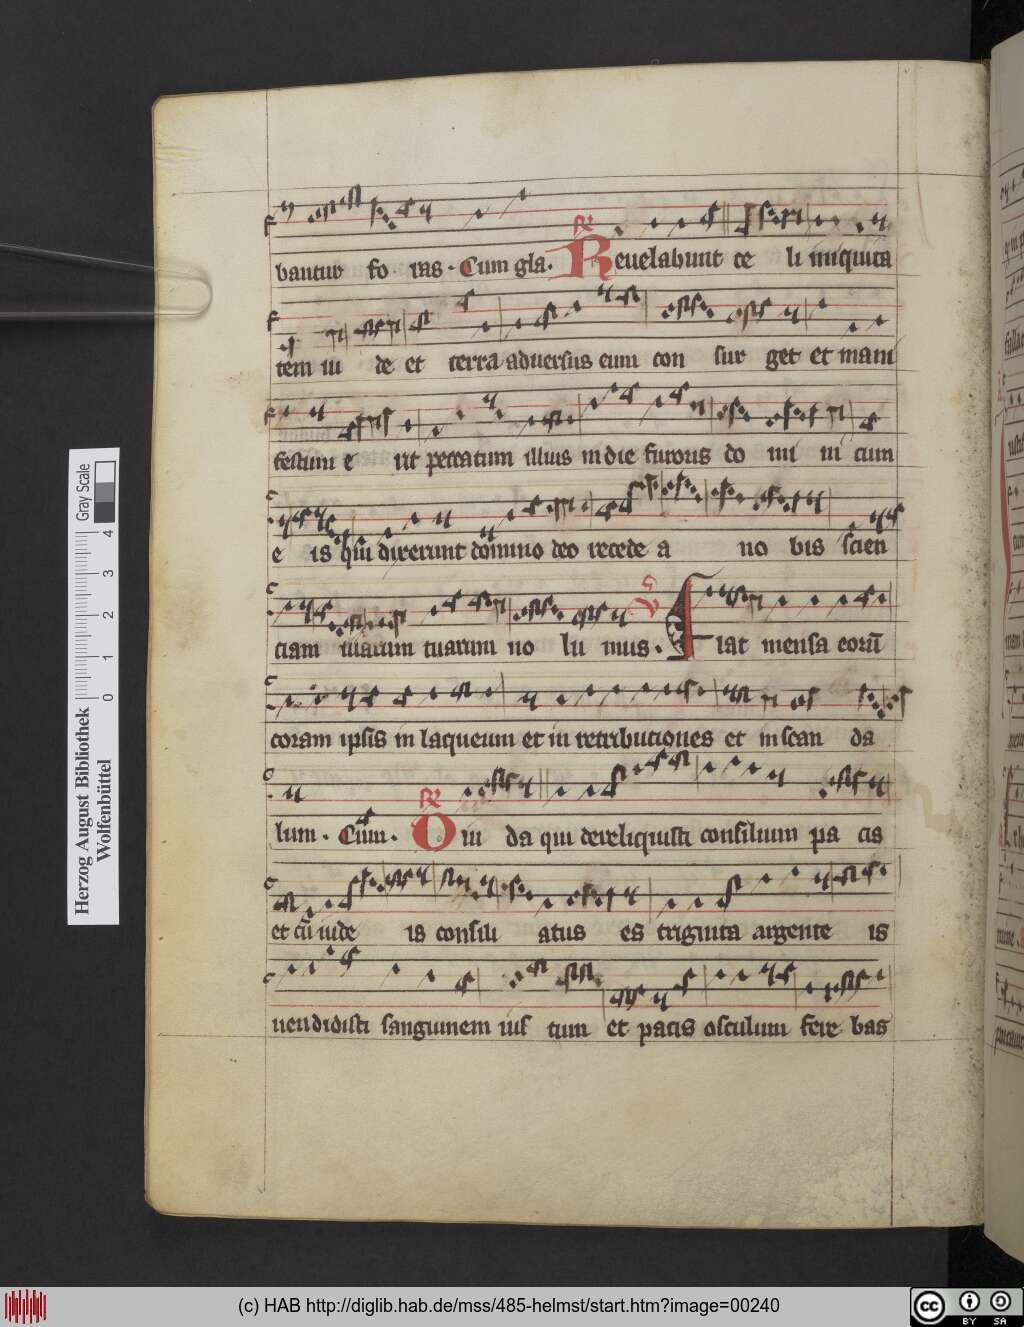 bantur fo ras. Cum gla. R Reuelabunt ce li iniquita
tem iu de et terra aduersus eum con sur get et mani
festum e rit peccatum illius in die furoris do mi ni cum
e is qui dixerunt domino deo recede a no bis scien
ciam uiarum tuarum no lu mus. V Fiat mensa eorū
coram ipsis in laqueum et in retributiones et in scan da
lum. Cum. R O iu da qui dereliquisti consilium pa cis
et cū iude is consili atus es triginta argente is
uendidisti sanguinem ius tum et pacis osculum fere bas
Herzog August Bibliothek
Wolfenbüttel
0 1 2 3 4
Gray Scale
(c) HAB http://diglib.hab.de/mss/485-helmst/start.htm?image=00240
cc BY SA